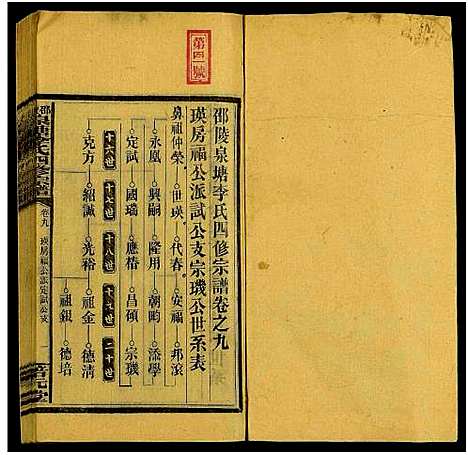 第四號
邵陵泉塘李氏四修宗譜卷之九
瑛房福公派試公支宗璣公世系表
鼻祖仲榮 世瑛 代春 安福 邦滾
永凰 興嗣 隆用 朝畇 添學
定試 國瑞 應楷 昌碩 宗璣
十六世 十七世 十八世 十九世 二十世
克方 紹誠 光裕 祖金 德清
祖銀 德培
卷九 瑛房福公派定試公支 一